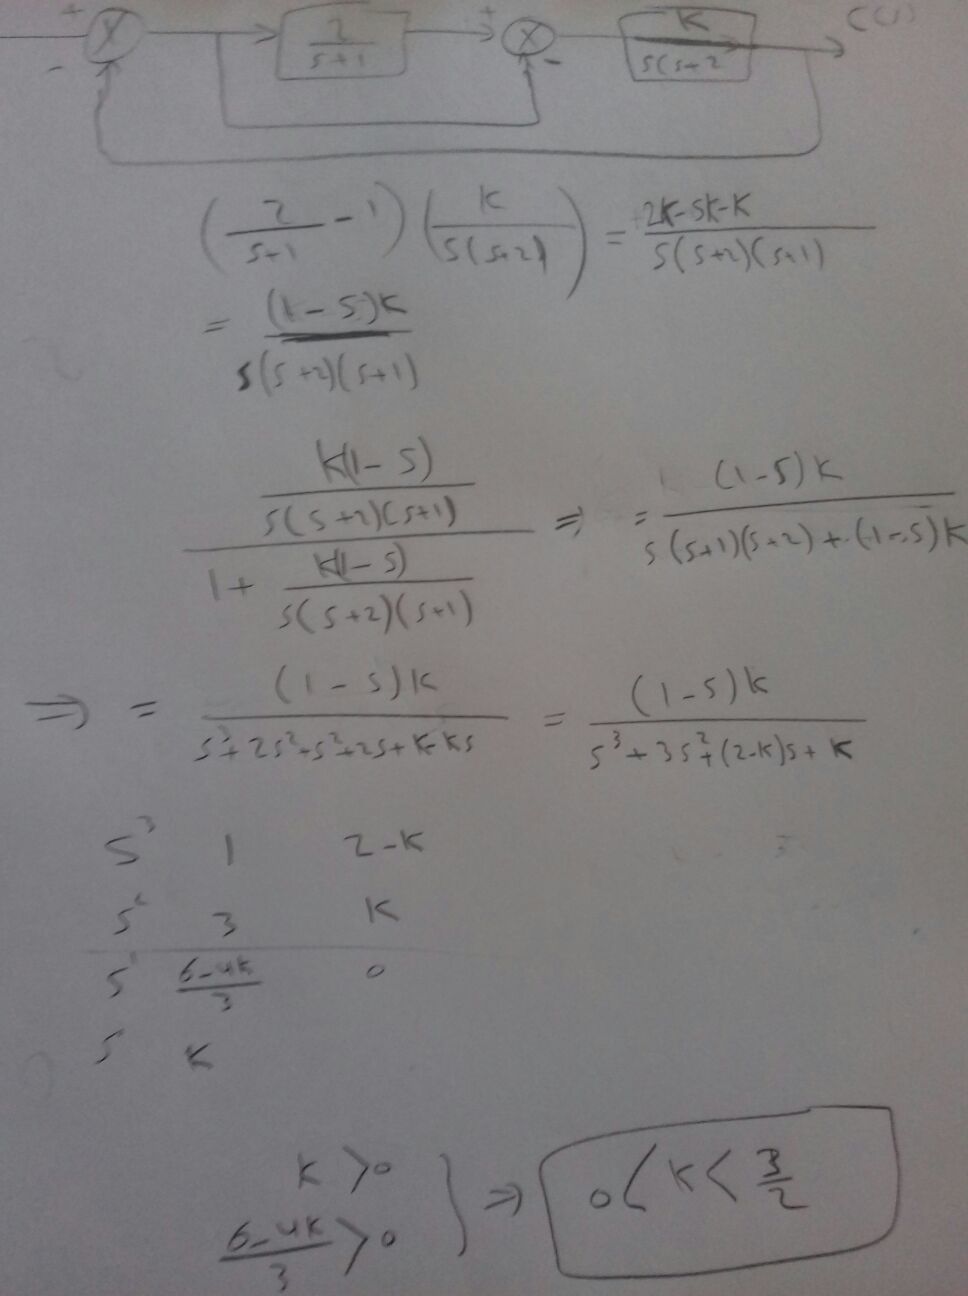 + X 2/(s+1) + X K/(s(s+2) C(s)
- -
(2/(s+1) - 1) (K/(s(s+2))) = (2K-SK-K)/(s(s+2)(s+1))
= ((1-s)K)/(s(s+2)(s+1))
(K(1-s)/(s(s+2)(s+1)))/(1 + K(1-s)/(s(s+2)(s+1))) ⇒ = ((1-s)K)/(s(s+1)(s+2)+(1-s)K
⇒ = ((1-s)K)/(s³+2s²+s²+2s+K-Ks) = ((1-s)K)/(s³+3s²+(2-K)s+K)
s³ 1 2-K
s² 3 K
s¹ (6-4K)/3 0
s K
K > 0
(6-4K)/3 > 0 } ⇒ 0 < K < 3/2